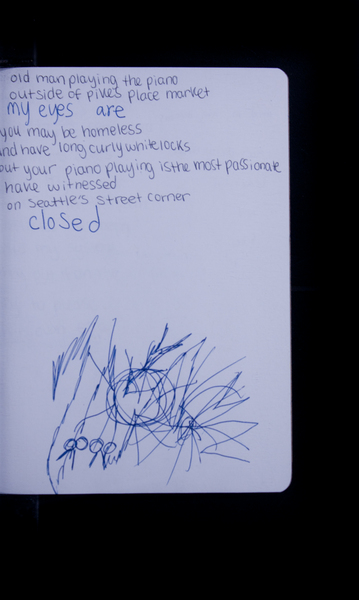 old man playing the piano
outside of pikes place market
my eyes are
you may be homeless
and have long curly white locks
but your piano playing is the most passionate
have witnessed
on Seattle's street corner
closed